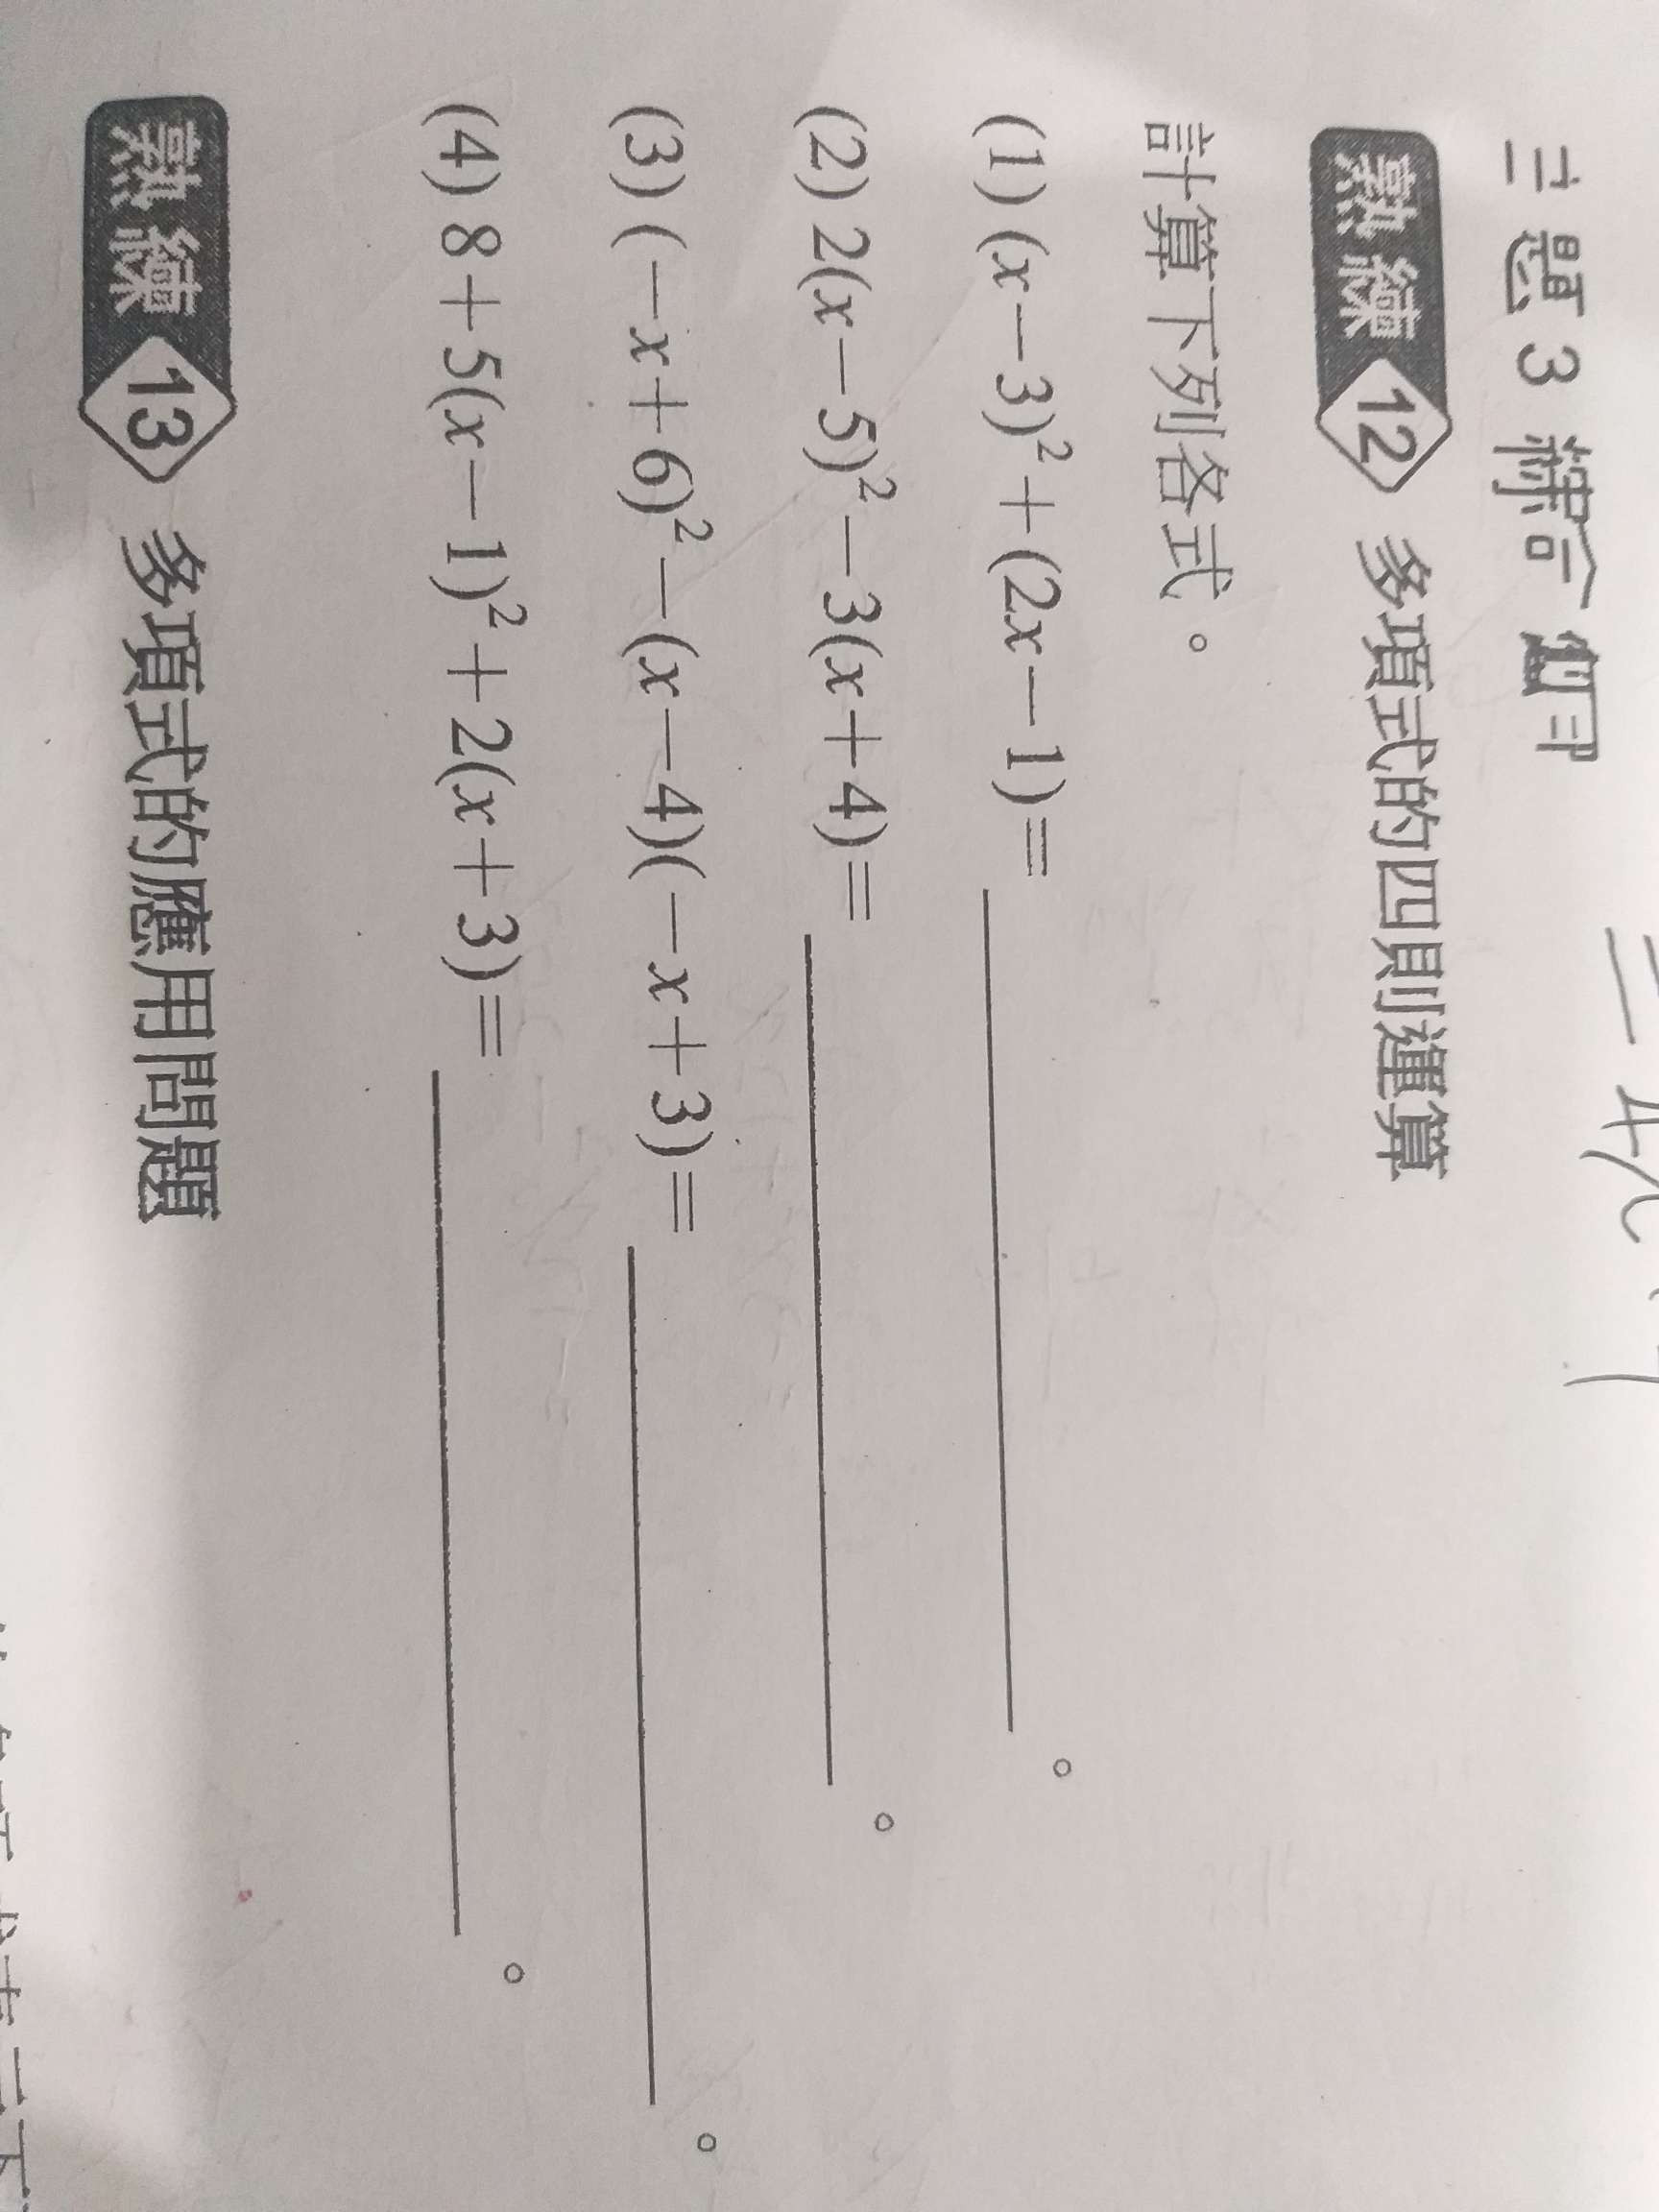 主題 3 綜合應用
熟練 12 多項式的四則運算
計算下列各式。
(1) (x－3)²＋(2x－1)＝ 。
(2) 2(x－5)²－3(x＋4)＝ 。
(3) (－x＋6)²－(x－4)(－x＋3)＝ 。
(4) 8＋5(x－1)²＋2(x＋3)＝ 。
熟練 13 多項式的應用問題